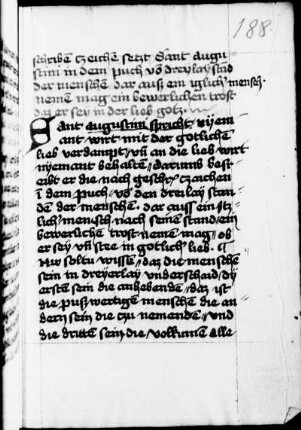 188.
schriben czeichen setzt Sant augu
stini in dem puch vō dreylay stānd
der menschen dar aus ein iglich mensch
nemen mag ein bewerlichen trost
das er sey in der lieb gotz
Sant augustin spricht nyem
ant wirt mit der gotlichen
lieb verdampt vn̄ an die lieb wirt
nyemant behalten darumb best
reibt er die nach geschr czaichen
ī dem puch vō den dreilay stan
den der menschen dar auss ein itz
lich mensch nach seinen stand ein
bewerlichen trost nemen mag ob
er sey vn̄ stee in gotlich lieb
Nw soltu wissen das die menschen
sein in dreyerlay vnderschaid dy
ersten sein die anhebenden das ist
die puswertigen menschen die an
dern sein die czu nemenden vnd
die dritten sein die volkumen alle